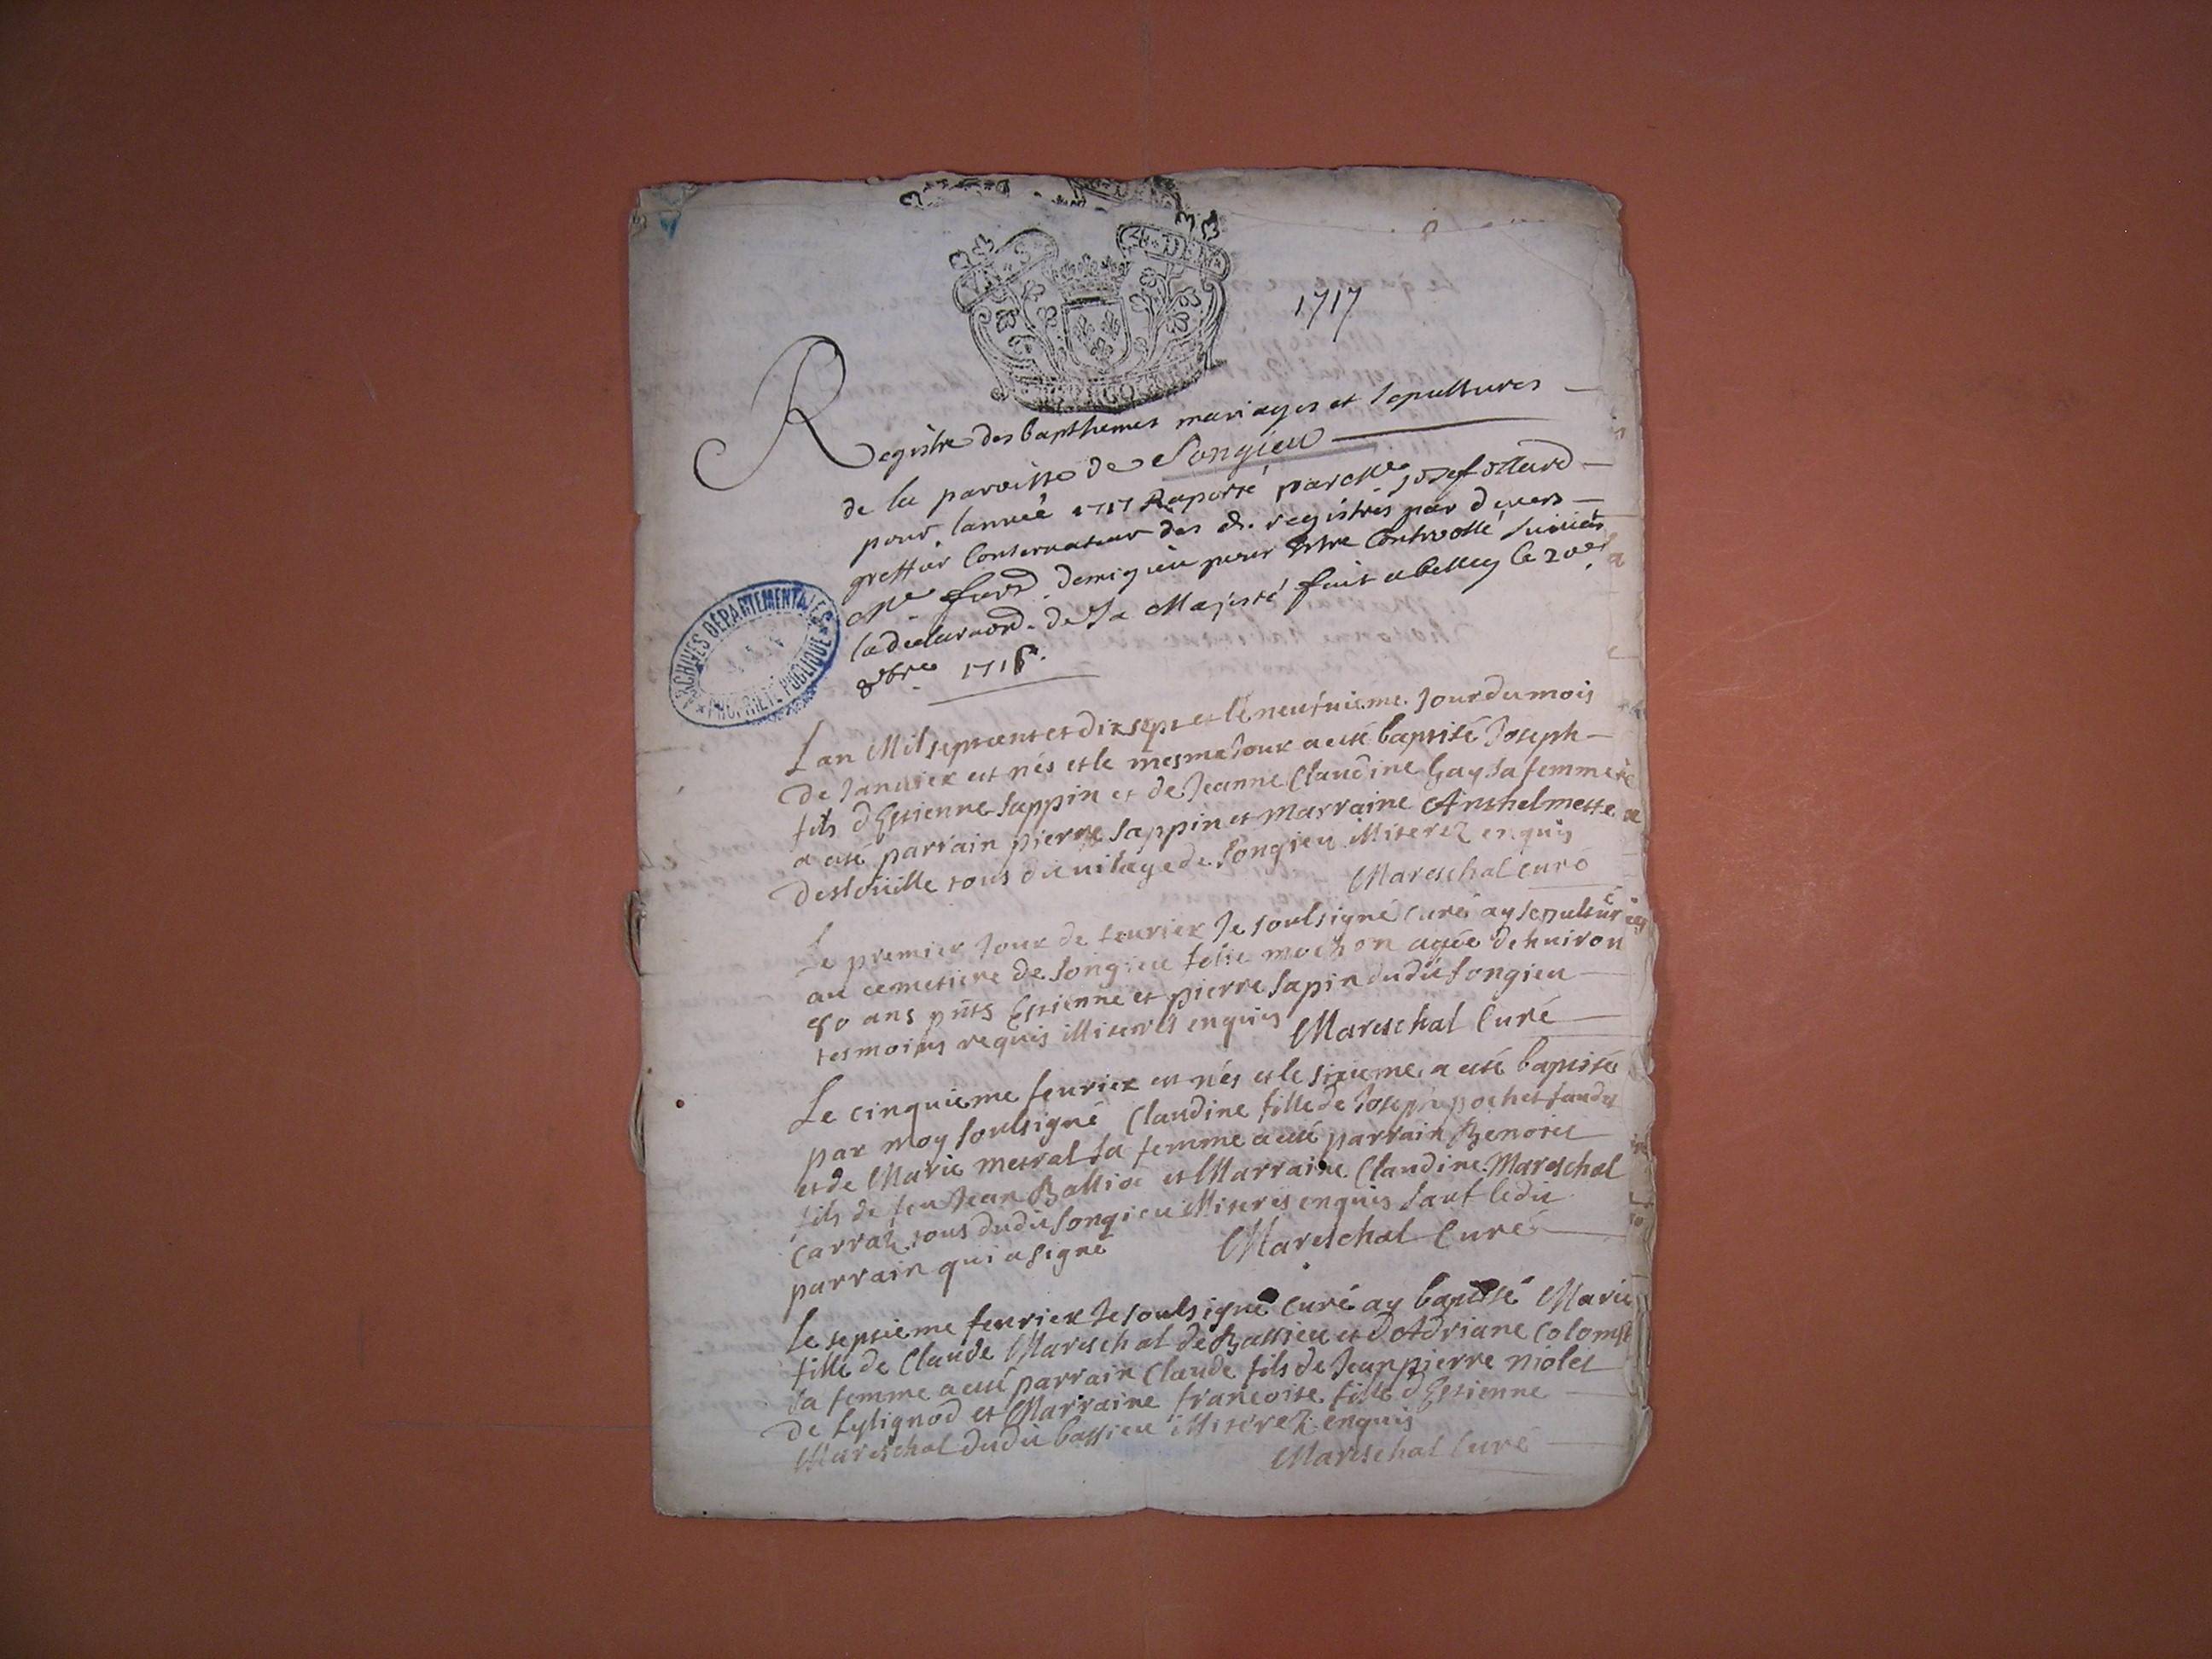 1717
Registre des bapthemes mariages et sepultures
de la paroisse de Songieu
pour lannée 1717 Raporté par Me Josef
greffier Conservateur des d. registres par devers
Me pour Estre Controllé suivant
la declaraon. de Sa Majesté fait a belley le 20e
8bre 1716.
ARCHIVES DEPARTEMENTALES
PROPRIETE PUBLIQUE
Lan Mil sept cent et dix sept et le neufvieme Jour du mois
de Janvier est nés et le mesme Jour a esté baptisé Joseph
fils d'Estienne Sappin et de Jeanne Claudine Gay sa femme
a esté parrain pierre Sappin et Marraine Anthelmette
deslouille tous du village de Songieu illiterez enquis
Mareschal Curé
Le premier Jour de fevrier Je soulsigné Curé ay sepulturé
au cemetiere de Songieu mochon agée denviron
ans pnts Estienne et pierre Sapin dudit Songieu
tesmoins requis illiterés enquis Mareschal Curé
Le cinquieme fevrier est nés et le sixieme a esté baptisée
par moy soulsigné Claudine fille de Joseph pochet
et de Marie metral sa femme a esté parrain Benoist
fils de feu Jean et Marraine Claudine Mareschal
Carraz tous dudit Songieu illiterés enquis sauf ledit
parrain qui a signé Mareschal Curé
Le septieme fevrier Je soulsigné Curé ay baptisé Marie
fille de Claude Mareschal de Bassieu et d'Adriane Colomb
sa femme a esté parrain Claude fils de Jean pierre violet
de Sylignod et Marraine francoise fille d'Estienne
Mareschal dudit bassieu illiterez enquis
Mareschal Curé